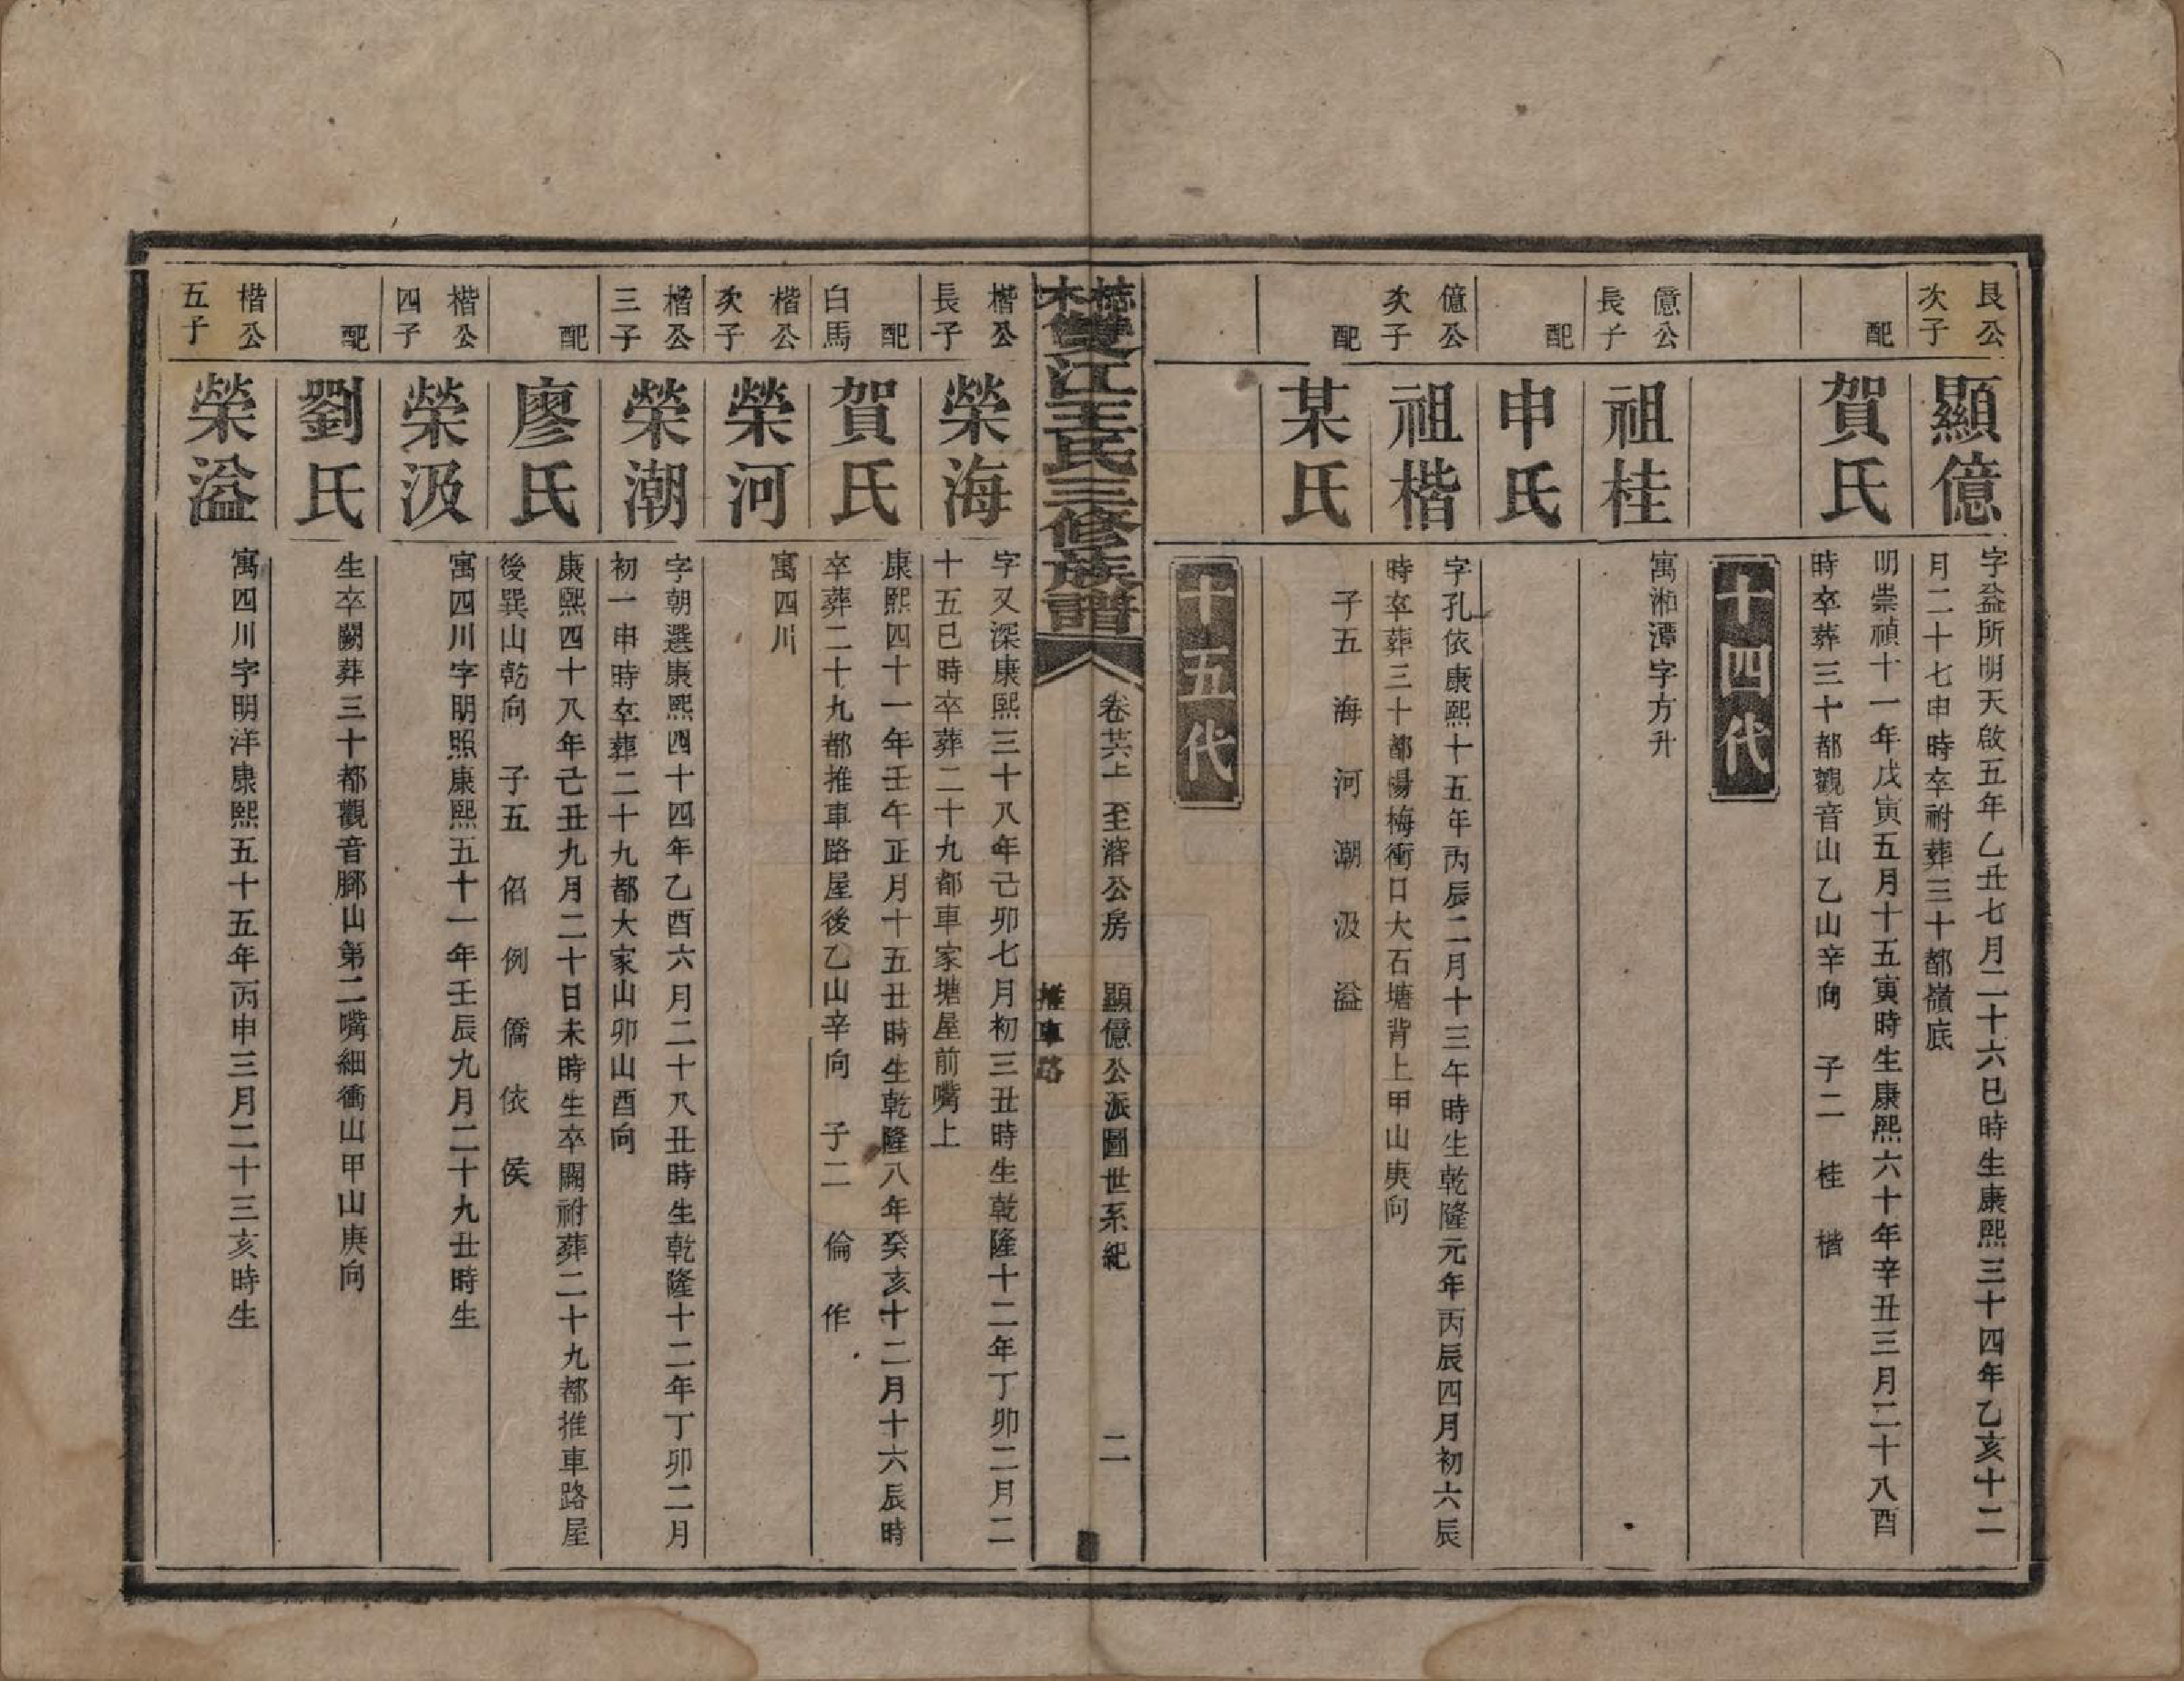 良公次子
顯億
字益所明天啟五年乙丑七月二十六巳時生康熙三十四年乙亥十二
月二十七申時卒祔葬三十都嶺底
配
賀氏
明崇禎十一年戊寅五月十五寅時生康熙六十年辛丑三月二十八酉
時卒葬三十都觀音山乙山辛向　子二　桂　楷
十四代
億公長子
祖桂
寓湘潭字方升
配
申氏
億公次子
祖楷
字孔依康熙十五年丙辰二月十三午時生乾隆元年丙辰四月初六辰
時卒葬三十都楊梅衝口大石塘背上甲山庚向
配
某氏
子五　海　河　潮　汲　溢
十五代
雙江王氏三修族譜
卷其上　至濬公房　顯億公派圖世系紀　二
推車路
楷公長子
榮海
字又深康熙三十八年己卯七月初三丑時生乾隆十二年丁卯二月二
十五巳時卒葬二十九都車家塘屋前嘴上
配白馬
賀氏
康熙四十一年壬午正月十五丑時生乾隆八年癸亥十二月十六辰時
卒葬二十九都推車路屋後乙山辛向　子二　倫　作
楷公次子
榮河
寓四川
楷公三子
榮潮
字朝選康熙四十四年乙酉六月二十八丑時生乾隆十二年丁卯二月
初一申時卒葬二十九都大家山卯山酉向
配
廖氏
康熙四十八年己丑九月二十日未時生卒闕祔葬二十九都推車路屋
後巽山乾向　子五　佋　例　僑　依　侯
楷公四子
榮汲
寓四川字明照康熙五十一年壬辰九月二十九丑時生
配
劉氏
生卒闕葬三十都觀音腳山第二嘴細衝山甲山庚向
楷公五子
榮溢
寓四川字明洋康熙五十五年丙申三月二十三亥時生